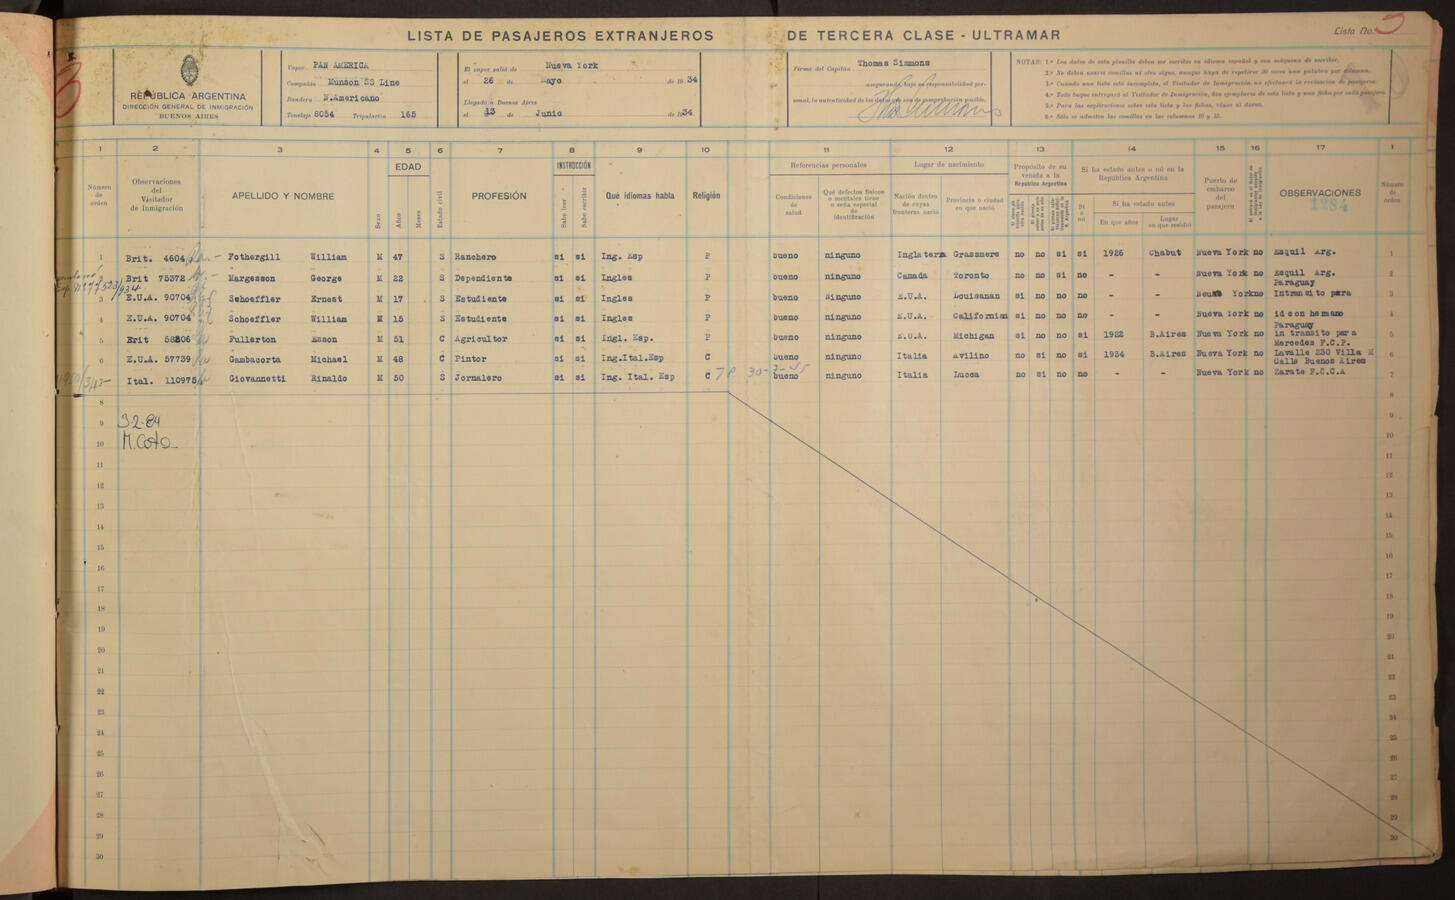 LISTA DE PASAJEROS EXTRANJEROS DE TERCERA CLASE - ULTRAMAR
Lista No. 3
3
REPÚBLICA ARGENTINA
DIRECCIÓN GENERAL DE INMIGRACIÓN
BUENOS AIRES
Vapor PAN AMERICA
Compañía Munson SS Line
Bandera N.Americano
Tonelaje 8054 Tripulación 165
El vapor salió de Nueva York
el 26 de Mayo de 1934
Llegado a Buenos Aires
el 13 de Junio de 1934
Firma del Capitán Thomas Simmons
asegurando, bajo su responsabilidad per-
sonal, la autenticidad de los datos que son de comprobación posible.
NOTAS: 1.ª Los datos de esta planilla deben ser escritos en idioma español y con máquina de escribir.
2.ª No deben usarse comillas ni otro signo, aunque haya de repetirse 30 veces una palabra por columna.
3.ª Cuando una lista esté incompleta, el Visitador de Inmigración no efectuará la revisación de pasajeros.
4.ª Todo buque entregará al Visitador de Inmigración, dos ejemplares de esta lista y una ficha por cada pasajero.
5.ª Para las explicaciones sobre esta lista y las fichas, véase al dorso.
6.ª Sólo se admiten las comillas en las columnas 10 y 15.
1 2 3 4 5 6 7 8 9 10 11 12 13 14 15 16 17 1
Número de orden
Observaciones del Visitador de Inmigración
APELLIDO Y NOMBRE
Sexo
EDAD
Años
Meses
Estado civil
PROFESIÓN
INSTRUCCIÓN
Sabe leer
Sabe escribir
Qué idiomas habla
Religión
Referencias personales
Condiciones de salud
Qué defectos físicos o mentales tiene o seña especial de identificación
Lugar de nacimiento
Nación dentro de cuyas fronteras nació
Provincia o ciudad en que nació
Propósito de su venida a la República Argentina
Si ha estado antes o nó en la República Argentina
Si o nó
Si ha estado antes
En que años
Lugar en que residió
Puerto de embarco del pasajero
OBSERVACIONES
1284
Número de orden
1 Brit. 4604 Fothergill William M 47 S Ranchero si si Ing. Esp P bueno ninguno Inglaterra Grassmere no no si si 1926 Chabut Nueva York no Esquil Arg. 1
2 Brit 75372 Margesson George M 22 S Dependiente si si Ingles P bueno ninguno Canada Toronto no si si no - - Nueva York no Esquil Arg. 2
Paraguay
3 E.U.A. 90704 Schoeffler Ernest M 17 S Estudiente si si Ingles P bueno Ninguno E.U.A. Louisanan si no no no - - Nueva York no Intransito para 3
4 E.U.A. 90704 Schoeffler William M 15 S Estudiente si si Ingles P bueno ninguno E.U.A. Californian si no no no - - Nueva York no id con hemano 4
Paraguay
5 Brit 58206 Fullerton Esson M 51 C Agricultor si si Ingl. Esp. P bueno ninguno E.U.A. Michigan si no no si 1922 B.Aires Nueva York no in transito para 5
Mercedes F.C.P.
6 E.U.A. 57739 Gambacorta Michael M 48 C Pintor si si Ing.Ital.Esp C bueno ninguno Italia Avilino no si no si 1934 B.Aires Nueva York no Lavalle 230 Villa M 6
Calle Buenos Aires
7 Ital. 110975 Giovannetti Rinaldo M 50 S Jornalero si si Ing. Ital. Esp C bueno ninguno Italia Lucca no si no no - - Nueva York no Zarate F.C.C.A 7
8 8
9 3-2-84 9
10 M. Cota 10
11 11
12 12
13 13
14 14
15 15
16 16
17 17
18 18
19 19
20 20
21 21
22 22
23
24 24
25 25
26 26
27 27
28 28
29 29
30 30